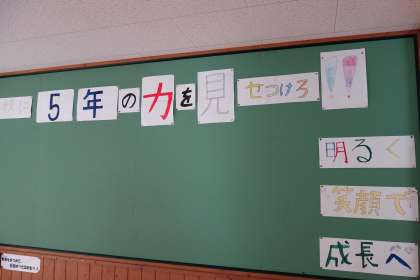 5年の力を見せつけろ!!
明るく
笑顔で
成長へ